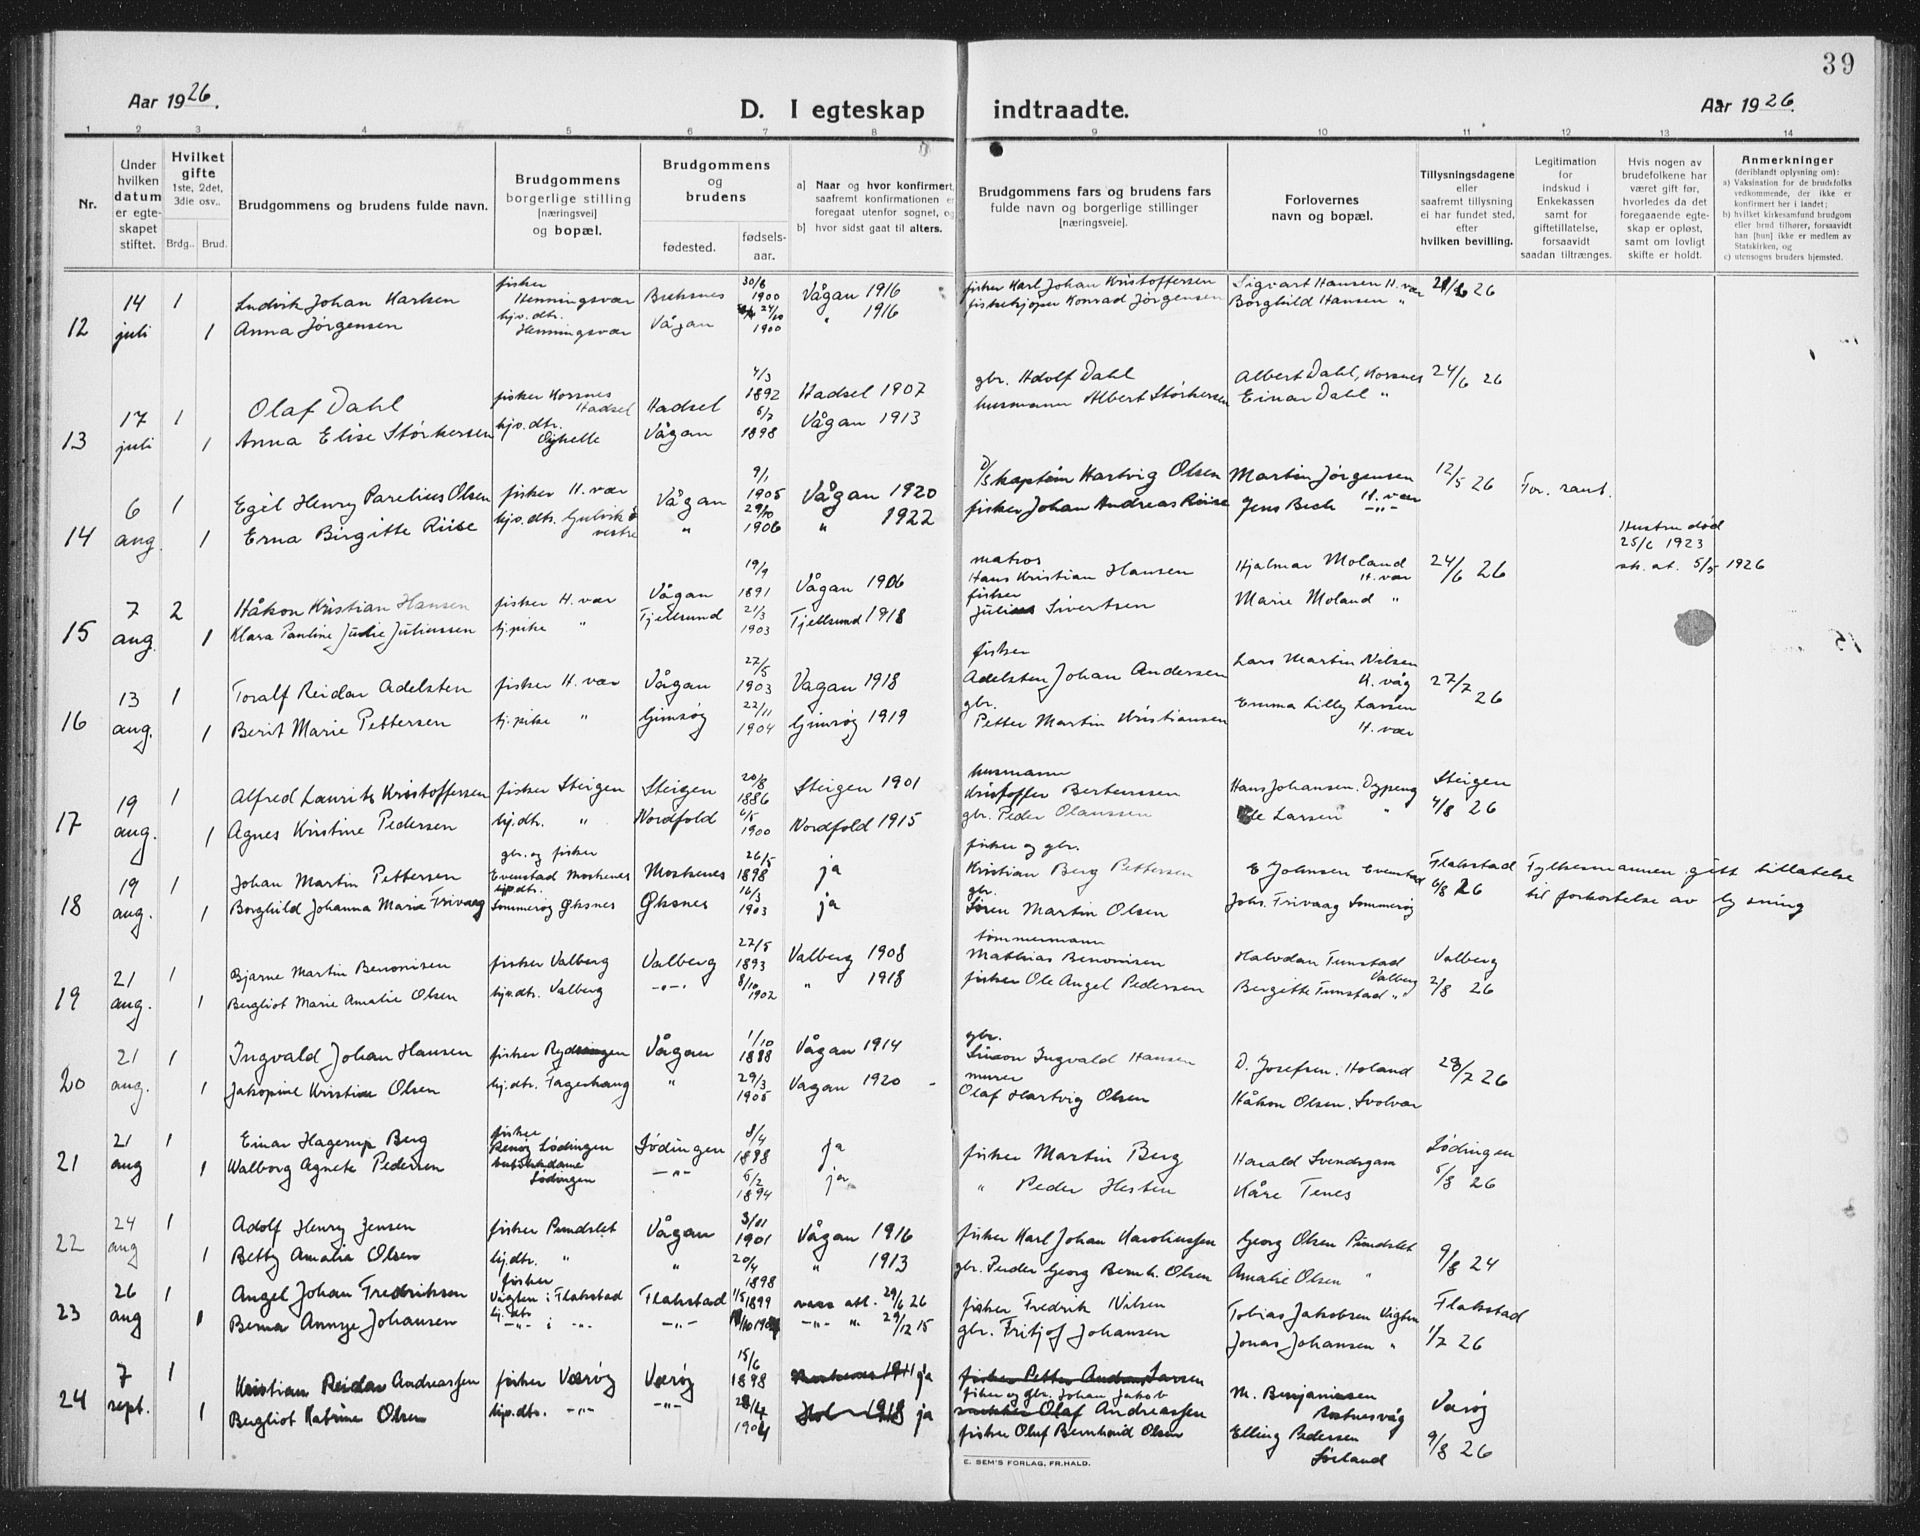 39
Aar 1926.
D. I egteskap indtraadte.
Aar 1926.
1 2 3 4 5 6 7 8 9 10 11 12 13 14
Nr.
Under hvilken datum er egteskapet stiftet.
Hvilket gifte 1ste, 2det, 3die osv..
Brdg.. Brud.
Brudgommens og brudens fulde navn.
Brudgommens borgerlige stilling [næringsvei] og bopæl.
Brudgommens og brudens
fødested. fødselsaar.
a] Naar og hvor konfirmert, saafremt konfirmationen er foregaat utenfor sognet, og
b] hvor sidst gaat til alters.
Brudgommens fars og brudens fars fulde navn og borgerlige stillinger [næringsveie].
Forlovernes navn og bopæl.
Tillysningsdagene eller saafremt tillysning ei har fundet sted, efter hvilken bevilling.
Legitimation for indskud i Enkekassen samt for giftetillatelse, forsaavidt saadan tiltrænges.
Hvis nogen av brudefolkene har været gift før, hvorledes da det foregaaende egteskap er opløst, samt om lovlig skifte er holdt.
Anmerkninger (deriblandt oplysning om):
a) Vaksination for de brudefolks vedkommende, der ikke er konfirmert her i landet;
b) hvilket kirkesamfund brudgom eller brud tilhører, forsaavidt han [hun] ikke er medlem av Statskirken, og
c) utensogns bruders hjemsted.
12 14 juli 1 Ludvik Johan Karlsen fisker Henningsvær Buksnes 30/8 1900 Vågan 1916 fisker Karl Johan Kristoffersen Sigvart Hansen H. vær 26
1 Anna Jørgensen hjv. dtr. Henningsvær Vågan 24/10 1900 " 1916 fiskekjøper Konrad Jørgensen Borghild Hansen "
13 17 juli 1 Olaf Dahl fisker Korsnes Hadsel Hadsel 4/3 1892 Hadsel 1907 gbr. Adolf Dahl Albert Dahl, Korsnes 24/6 26
1 Anna Elise Størkersen hjv. dtr. Vågan 1898 Vågan 1913 husmann Albert Størkersen Einar Dahl "
14 6 aug. 1 Egil Henry Parelius Olsen fisker H. vær Vågan 9/1 1905 Vågan 1920 D/S kaptein Hartvig Olsen Martin Jørgensen H. vær 12/5 26
1 Erna Birgitte Riise hjv. dtr. vestre " 29/10 1906 " 1922 fisker Johan Andreas Riise Jens Bech -"-
15 7 aug. 2 Håkon Kristian Hansen fisker H. vær Vågan 19/9 1891 Vågan 1906 matros Hans Kristian Hansen Hjalmar Moland H. vær 24/6 26 Hustru død 25/6 1923 sk. at. 5/5 1926
1 Klara Pauline Julie Juliussen tj. pike " Tjeldsund 21/3 1903 Tjeldsund 1918 fisker Julius Sivertsen Marie Moland "
16 13 aug. 1 Toralf Reidar Adelsten fisker H. vær Vågan 27/5 1903 Vågan 1918 fisker Adelsten Johan Andersen Lars Martin Nilsen H. våg 27/7 26
1 Berit Marie Pettersen tj. pike " Gimsøy 22/11 1904 Gimsøy 1919 gbr. Petter Martin Kristiansen Emma Lilly Larsen H. vær
17 19 aug. 1 Alfred Laurits Kristoffersen fisker Steigen Steigen 20/8 1886 Steigen 1901 husmann Kristoffer Berteussen Hans Johansen. Dypeng Steigen 4/8 26
1 Agnes Kristine Pedersen hj. dtr. " Nordfold 6/5 1900 Nordfold 1915 gbr. Peder Olaussen Ole Larsen "
18 19 aug. 1 Johan Martin Pettersen gbr. og fisker Evenstad Moskenes Moskenes 26/5 1898 ja fisker og gbr. Kristian Berg Pettersen E Johnsen Evenstad Flakstad 6/8 26 Fylkesmannen gitt tillatelse til forkortelse av lysning
1 Borghild Johanna Marie Trivaag hjv. dtr. Sommerøy Øksnes Øksnes 16/3 1903 ja gbr. Søren Martin Olsen Johs. Trivaag Sommerøy
19 21 aug. 1 Bjarne Martin Benonisen fisker Valberg Valberg 27/5 1893 Valberg 1908 tømmermann Mathias Benonisen Halvdan Tunstad Valberg Valberg 2/8 26
1 Bergliot Marie Amalie Olsen hjv. dtr. Valberg -"- 8/10 1902 " 1918 fisker Ole Angel Pedersen Bergitte Tunstad "
20 21 aug. 1 Ingvald Johan Hansen fisker Vågan 1/10 1888 Vågan 1914 gbr. Simon Ingvald Hansen D. Josefsen. Holand 28/7 26
1 Jakopine Kristine Olsen hj. dtr. " 29/3 1905 Vågan 1920 murer Olaf Hartvig Olsen Håkon Olsen. Svolvær
21 21 aug 1 Einar Hagerup Berg fisker Lødingen Lødingen 8/4 1898 ja fisker Martin Berg Harald Svendsgam Lødingen 5/8 26
1 Walborg Agnete Pedersen Lødingen -"- 6/2 1894 ja " Peder Hesten Kåre Tenes
22 24 aug 1 Adolf Henry Jensen fisker Pundslet Vågan 3/11 1901 Vågan 1916 fisker Karl Johan Georg Olsen Pundslet 9/8 24
1 Betty Amalia Olsen hj. dtr. " " 20/4 1898 " 1913 gbr. Peder Georg Bernh. Olsen Amalie Olsen "
23 26 aug 1 Angel Johan Fredriksen fisker Vigten i Flakstad Flakstad 1/5 1899 29/6 26 fisker Fredrik Nilsen Tobias Jakobsen Vigten Flakstad 1/7 26
1 Berna Annye Johansen hj. dtr. -"- i -"- -"- -"- " 29/12 15 gbr. Fritjof Johansen Jonas Johansen "
24 7 sept. 1 Kristian Reidar Andreassen fisker Værøy Værøy 15/6 1898 ja fisker og gbr. Johan Jakob Andreassen M. Benjaminsen Værøy 9/8 26
1 Bergliot Katrine Olsen hjv. dtr. -"- -"- 28/4 1904 ja fisker Oluf Bernhard Olsen Elling Pedersen Sørland
E. SEM'S FORLAG, FR.HALD.